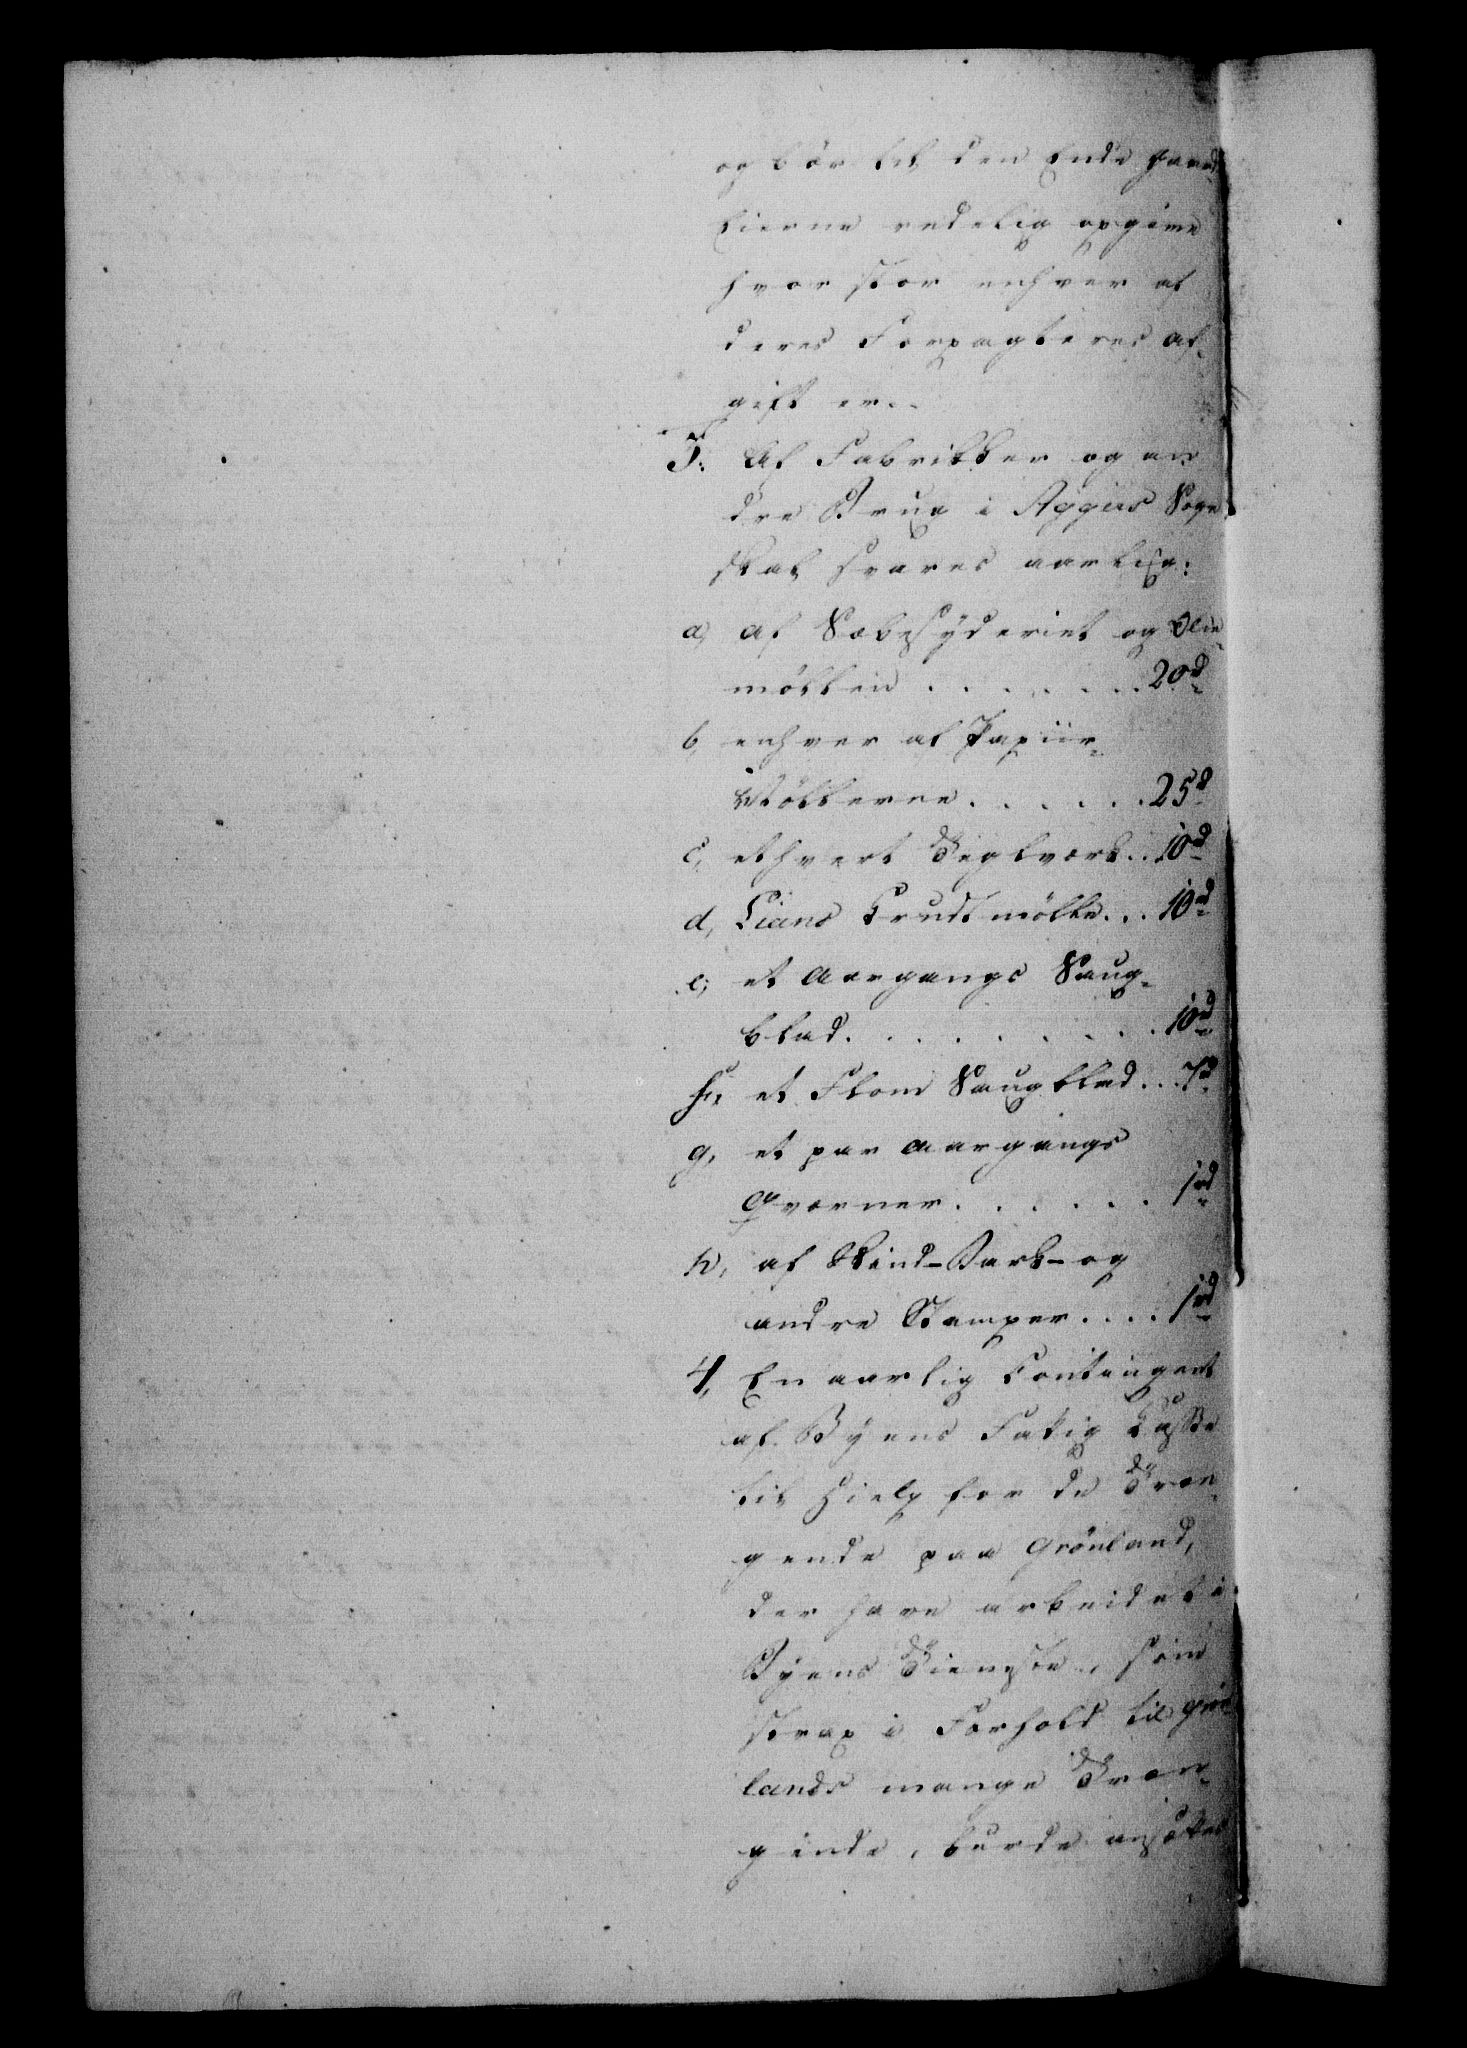 og bör til den Ende Gaard-
Eierne redelig opgive
hvor stor enhver af
deres Forpagteres Af-
gift er..
3: Af Fabrikker og an
dre Brug i Aggers Sogn
skal svares aarlig:
a, af Sæbesÿderiet og Olie-
möllen . . . . . . . 20rd
b, enhver af Papiir-
Möllerne . . . . . . 25rd
c, ethvert Teglværk . . 10rd
d, Lians Krudtmölle . . . 10rd
e, et Aargangs Saug-
blad . . . . . . . . . 10rd
f, et Flom Saugblad . . 7rd
g, et par Aargangs
Qværner . . . . . . 1rd
h, af Skind-Bark-og
andre Stamper . . . . 1rd
4, En aarlig Contingent
af Bÿens Fattig Casse
til Hielp for de Træn-
gende paa Grönland,
der have arbeidet i
Bÿens Tieneste, som
strax i Forhold til Grön
lands mange Træn-
gende, burde ansættes